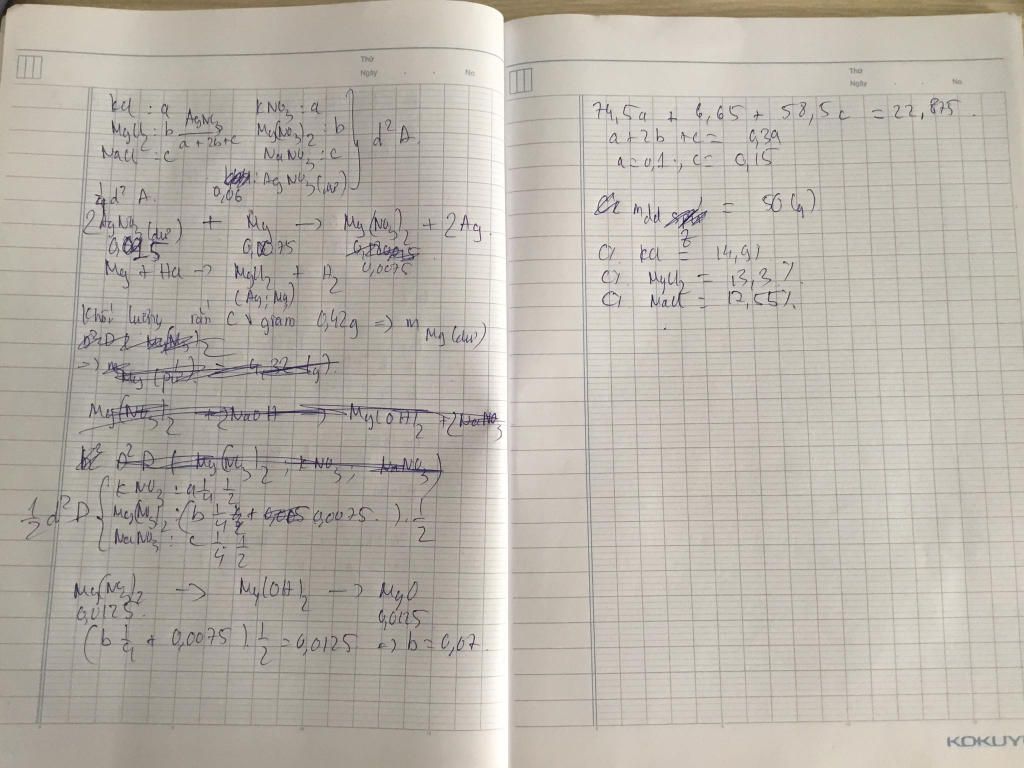 Thứ
Ngày . . No.
KCl : a KNO3 : a
MgCl2 : b AgNO3 Mg(NO3)2 : b
a + 2b + c
NaCl : c NaNO3 : c
d² A
0,06 : AgNO3 (dư)
1/4 d² A.
2AgNO3 (dư) + Mg → Mg(NO3)2 + 2Ag.
0,015 0,0075 0,0075
Mg + HCl → MgCl2 + H2
(Ag, Mg)
Khối lượng rắn C giảm 0,42g => m Mg (dư)
=> m Mg (pứ) = 4,32 (g).
Mg(NO3)2 + 2NaOH → Mg(OH)2 + 2NaNO3
D² D ( Mg(NO3)2 ; KNO3 , NaNO3 )
1/2 d² D
KNO3 : a 1/4 . 1/2
Mg(NO3)2 : (b 1/4 + 0,0075 ) . 1/2
NaNO3 : c 1/4 . 1/2
Mg(NO3)2 → Mg(OH)2 → MgO
0,0125 0,0125
(b 1/4 + 0,0075) . 1/2 = 0,0125 => b = 0,07
Thứ
Ngày . . No.
74,5a + 6,65 + 58,5c = 22,875
a + 2b + c = 0,39
a = 0,1 ; c = 0,15
m dd = 50 (g)
C% KCl = 14,9%
C% MgCl2 = 13,3%
C% NaCl = 17,55%.
KOKUY